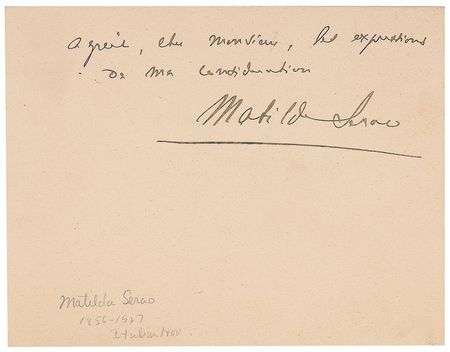 Agréét, cher Monsieur, les expressions
de ma considération
Matilde Serao
Matilda Serao
1856-1927
Italian Nov.